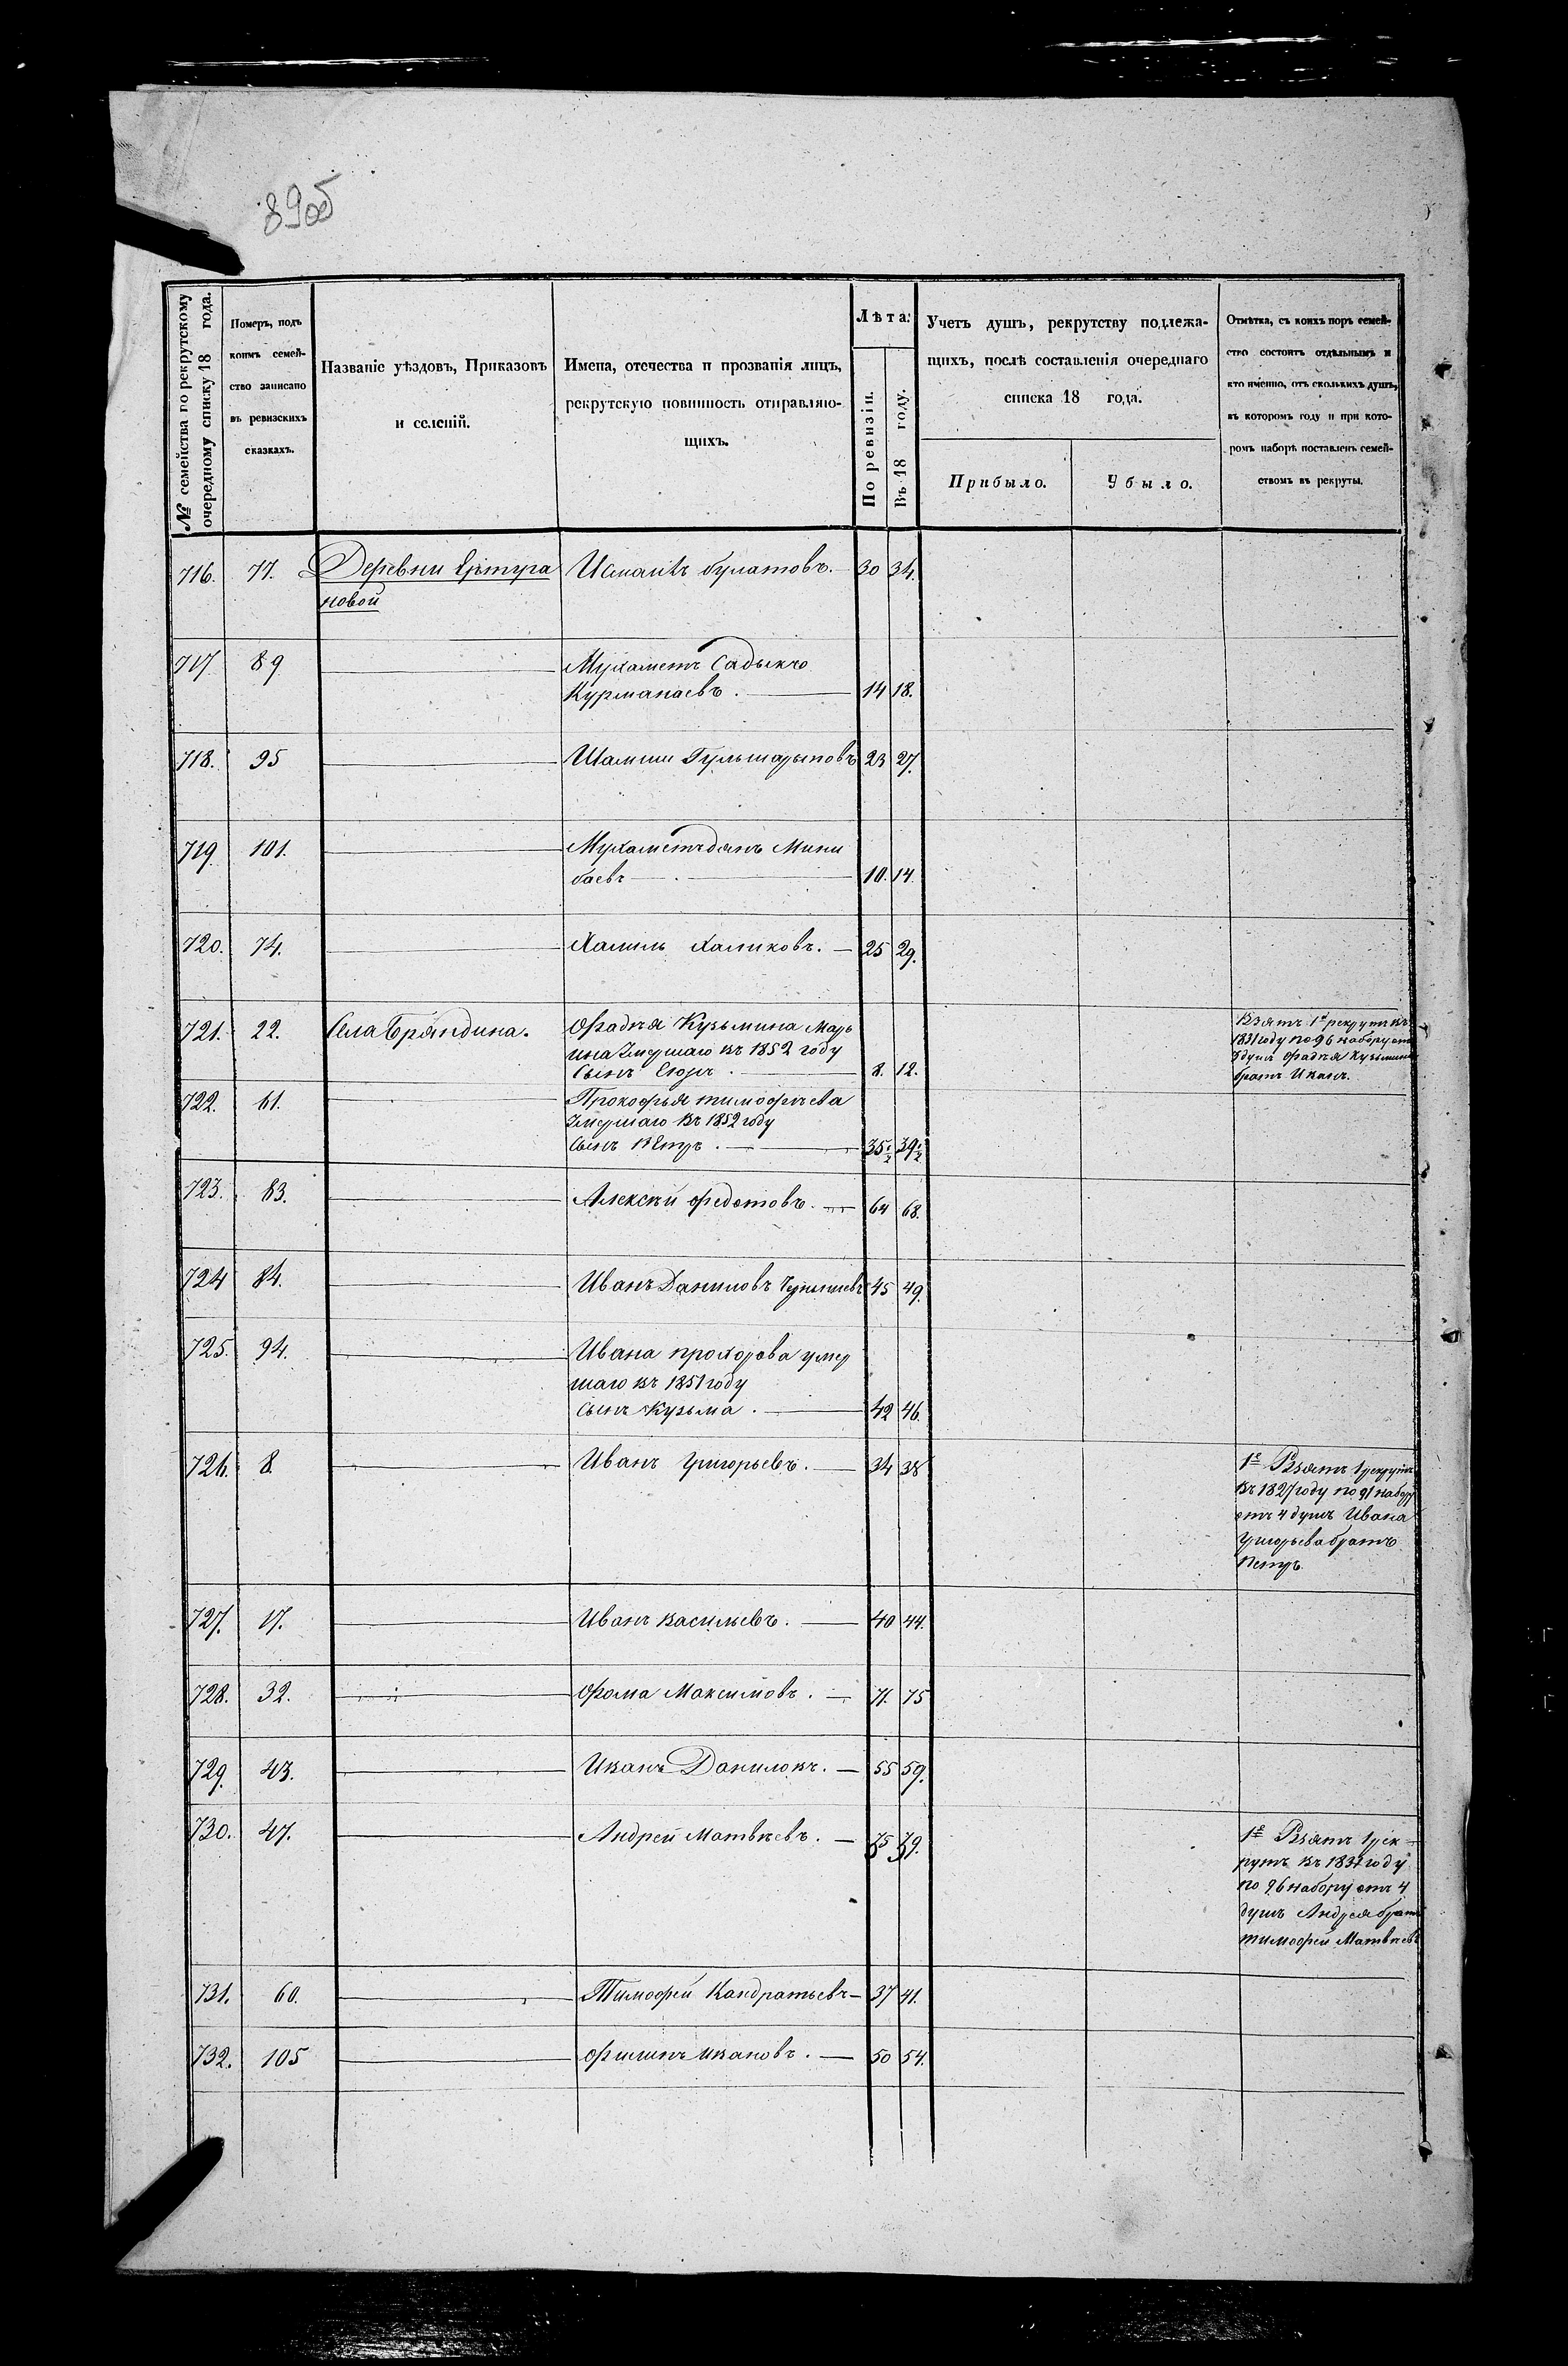 89об
№ семейства по рекрутскому очередному списку 18 года.
Номеръ, подъ коимъ семейство записано въ ревизскихъ сказкахъ.
Названіе уѣздовъ, Приказовъ и селеній.
Имена, отечества и прозванія лицъ, рекрутскую повинность отправляющихъ.
Лѣта:
По ревизіи.
Въ 18 году.
Учетъ душъ, рекрутству подлежащихъ, послѣ составленія очереднаго списка 18 года.
Прибыло.
Убыло.
Отмѣтка, съ коихъ поръ семейство состоитъ отдѣльнымъ и кто именно, отъ сколькихъ душъ, въ которомъ году и при которомъ наборѣ поставленъ семействомъ въ рекруты.
716. 77. Деревни
новой
Исмаилъ булатовъ. 30 34.
717 89 Мухаметъ Садыкъ
Курманаевъ. 14 18.
718. 95 23 27.
719. 101. Мухаметъдянъ Мини
баевъ 10. 14.
720. 74. Халиль Халиковъ. 25 29.
721. 22. Села Бряндина. Фадѣя Кузьмина Марь
ина Умершаго въ 1852 году
Сынъ 8. 12.
Взятъ 1й рекрутъ въ
1831 году по 96 набору отъ
душъ Фадѣя Кузьмина
братъ Иванъ.
722. 61. Прокофья тимофѣева
Умершаго въ 1852 году
Сынъ Петръ. 35½ 39½
723. 83. Алексѣй Федотовъ. 64 68.
724 84. Иванъ Даниловъ 45 49.
725. 94. Ивана прохорова умер
шаго въ 1851 году
Сынъ Кузьма. 42 46.
726. 8. Иванъ Григорьевъ. 34 38
1е Взятъ 1 рекрутъ
въ 1827 году по 91 набору
отъ 4 душъ Ивана
Григорьева братъ
Петръ
727. 17. Иванъ Васильевъ. 40 44.
728. 32. Фома Максимовъ. 71. 75
729. 43. Иванъ Даниловъ. 55 59.
730. 47. Андрей Матвѣевъ.
1е Взятъ 1 рек
рутъ въ 1831 году
по 96 набору отъ 4
душъ Андрея братъ
тимофей Матвѣевъ
731. 60. Тимофей Кандратьевъ 37 41.
732. 105 Филипъ Ивановъ. 50 54.